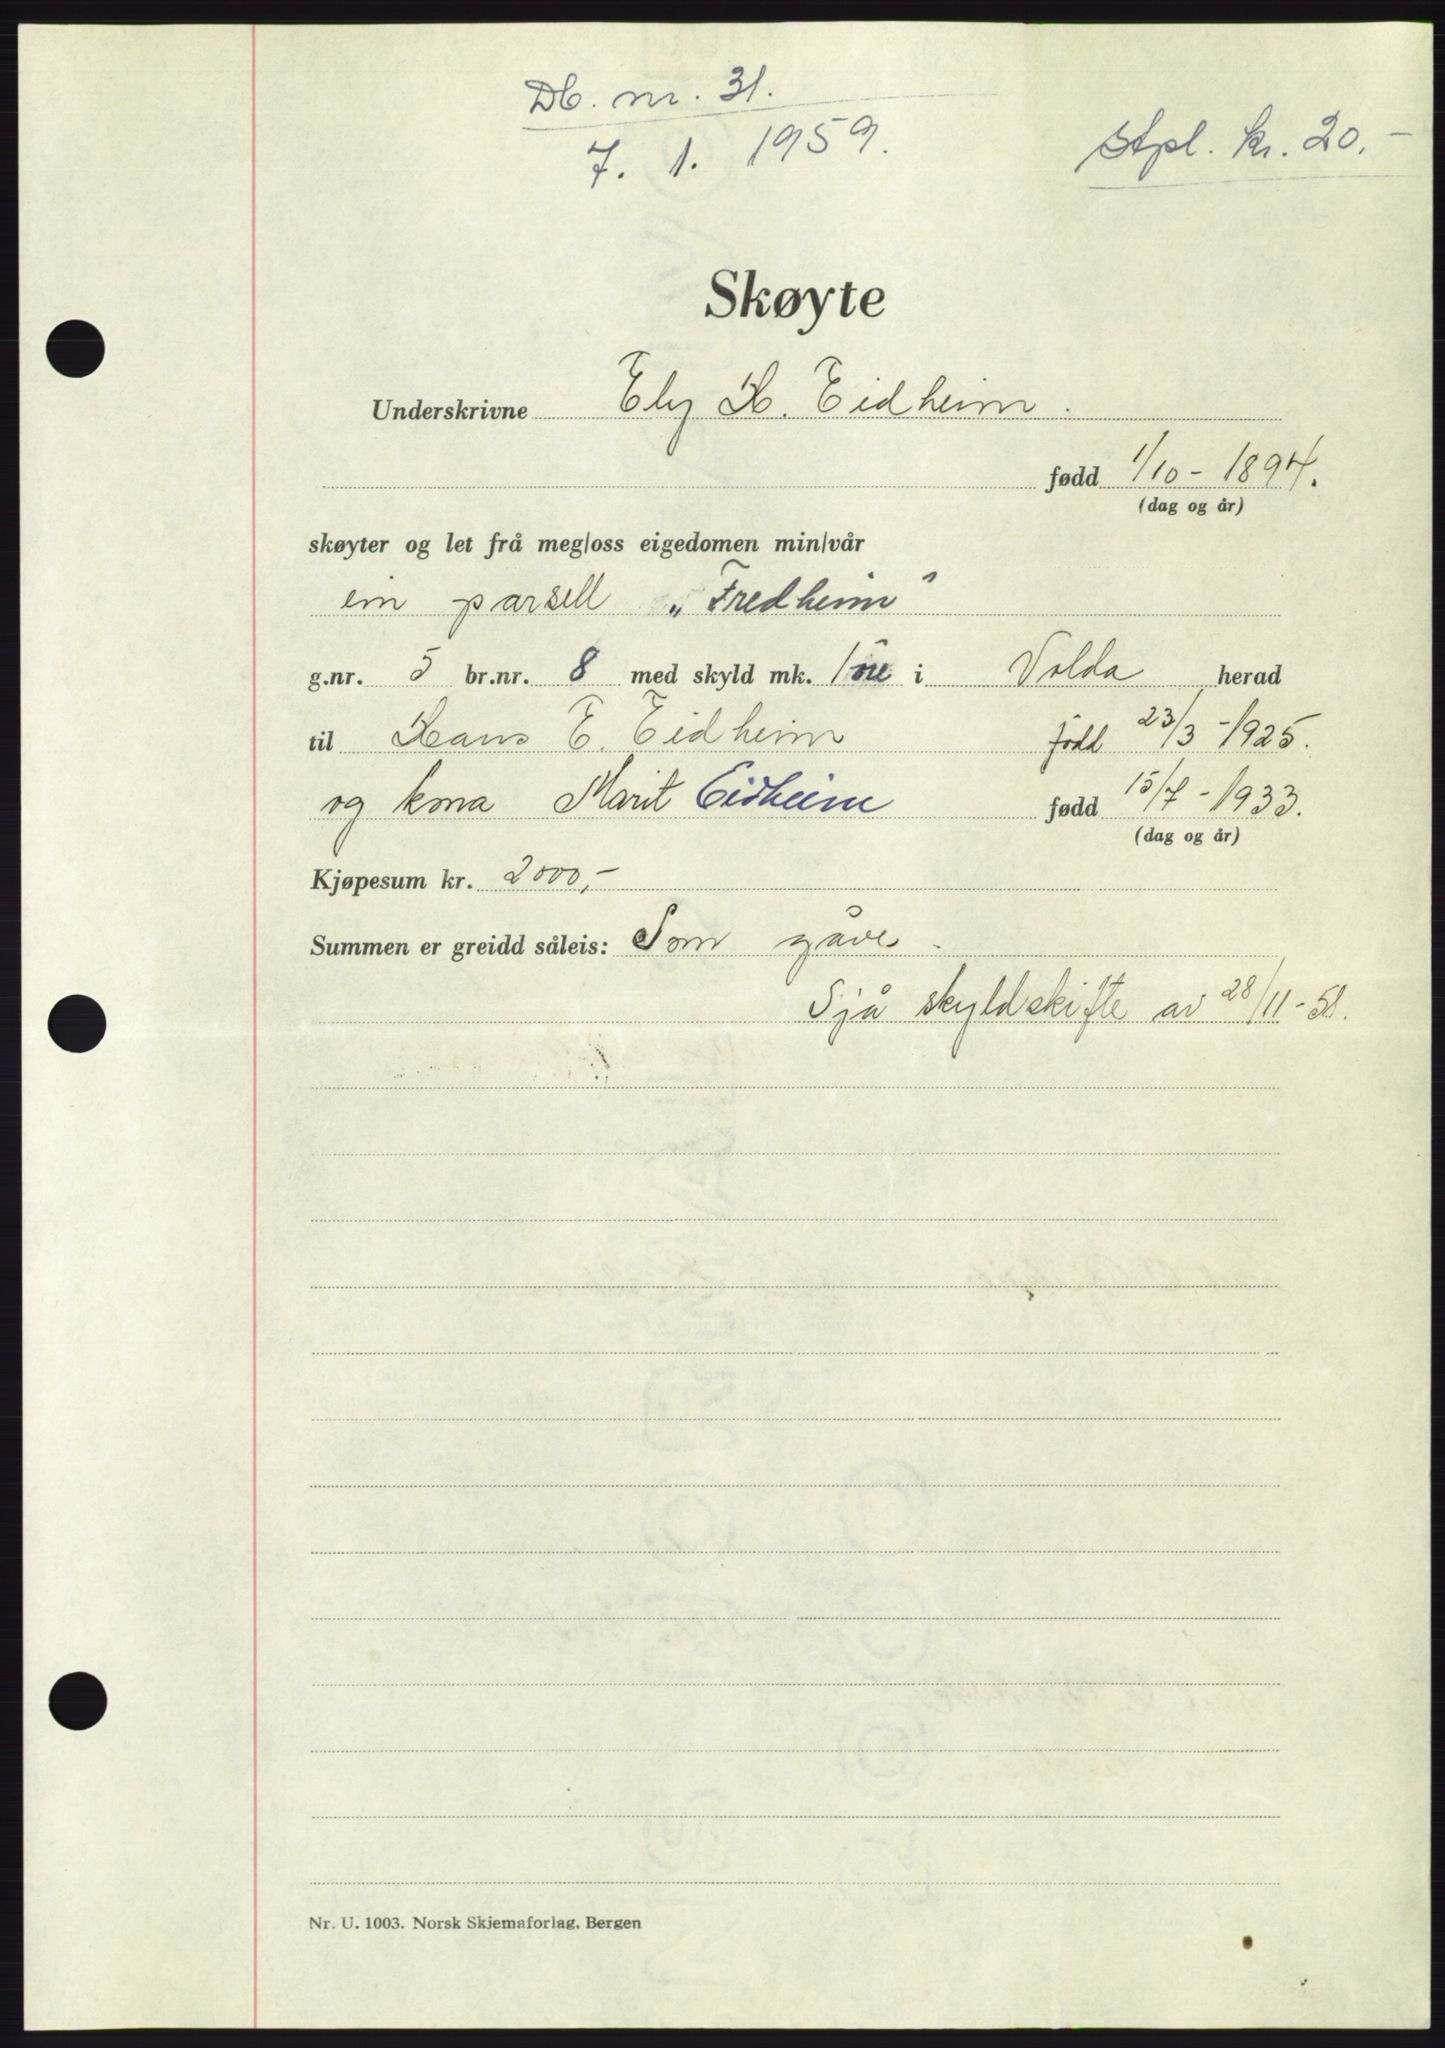 Db. nr. 31.
7. 1. 1959.
Stpl. kr. 20.-
Skøyte
Underskrivne Ely H. Eidheim.
fødd 1/10 - 1894.
(dag og år)
skøyter og let frå meg/oss eigedomen min/vår
ein parsell „Fredheim"
g.nr. 5 br.nr. 8 med skyld mk. 1 øre i Volda herad
til Hans E. Eidheim fødd 23/3 - 1925.
og kona Marit Eidheim fødd 15/7 - 1933.
(dag og år)
Kjøpesum kr. 2000,-
Summen er greidd såleis: Som gåve.
Sjå skyldskifte av 28/11 - 58.
Nr. U. 1003. Norsk Skjemaforlag, Bergen